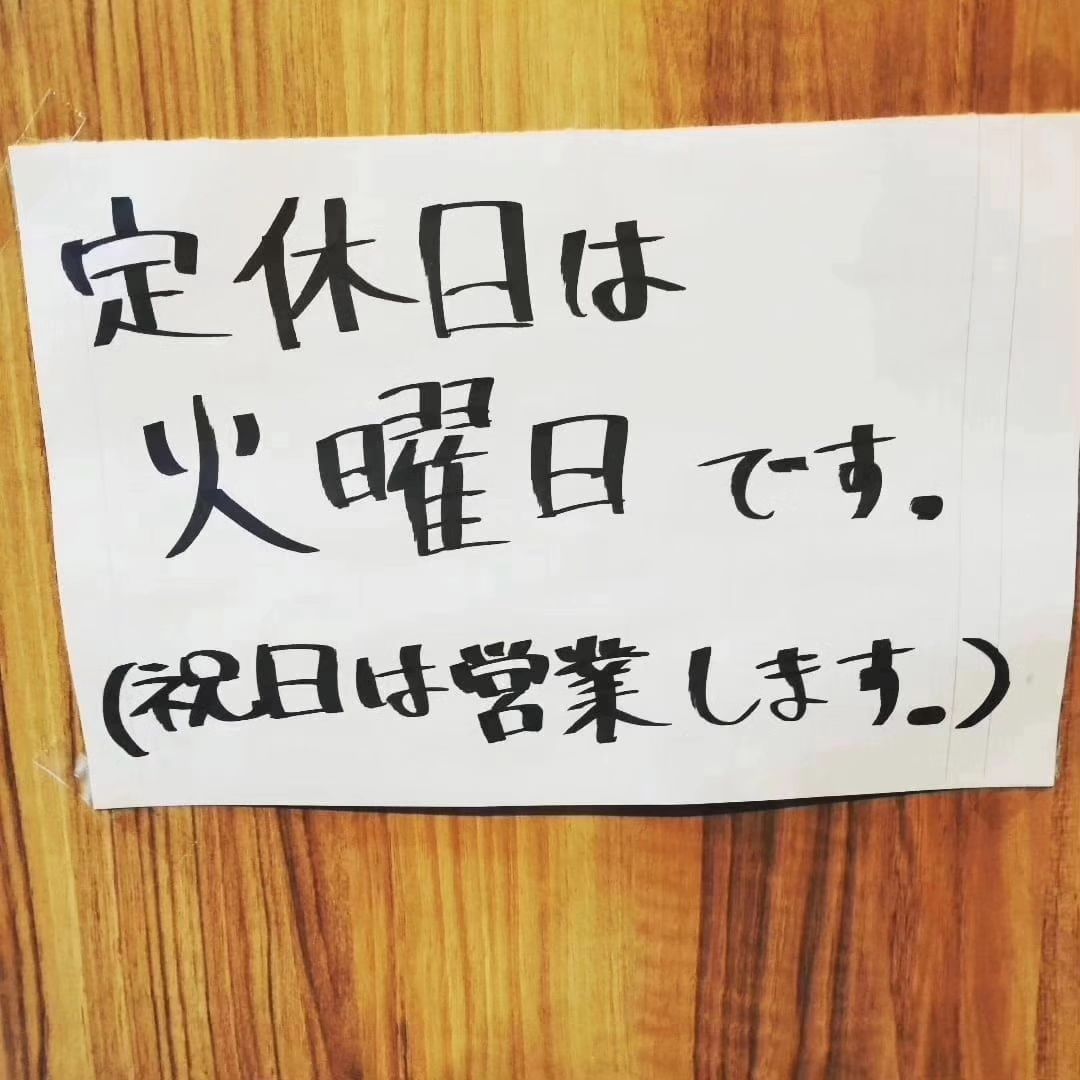 定休日は
火曜日です.
(祝日は営業します.)